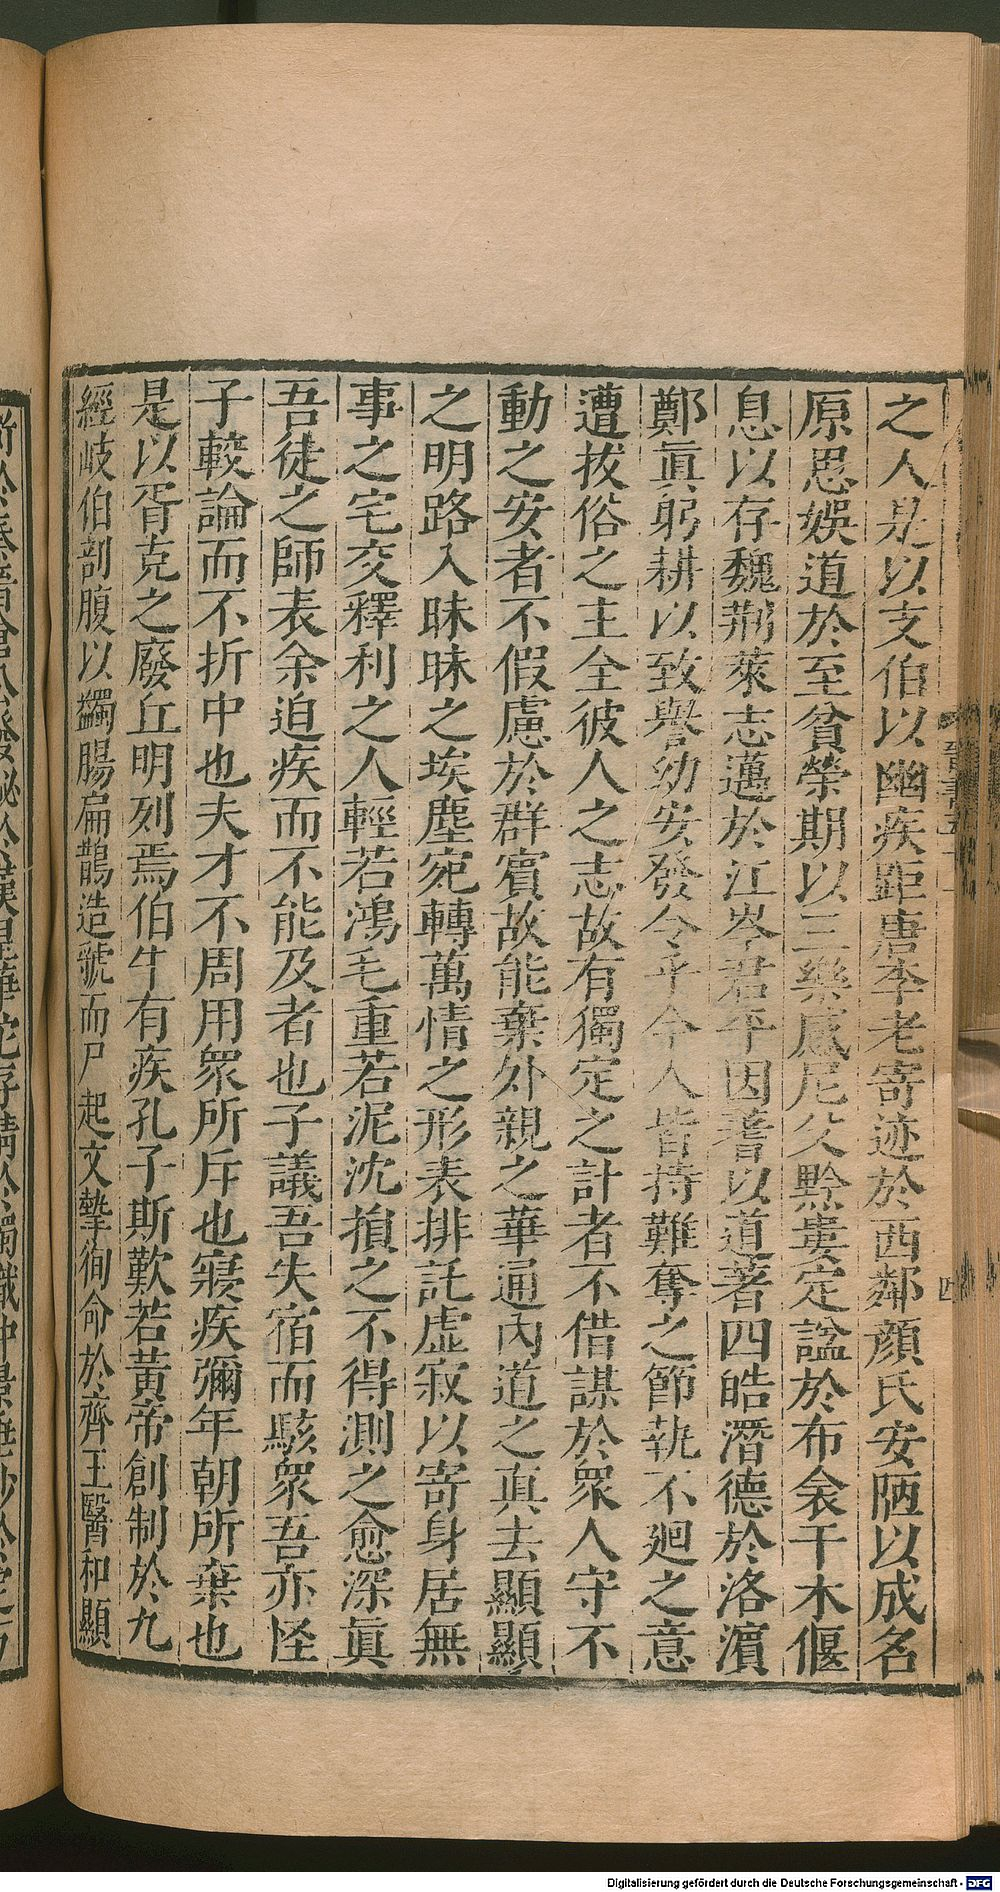 之人是以支伯以幽疾距唐李老寄迹於西鄰顏氏安陋以成名
原思娛道於至貧榮期以三樂感尼父黔婁定諡於布衾干木偃
息以存魏荊萊志邁於江岑君平因蓍以道著四皓潛德於洛濱
鄭眞躬耕以致譽幼安發令乎今人皆持難奪之節執不廻之意
遭拔俗之主全彼人之志故有獨定之計者不借謀於衆人守不
動之安者不假慮於群賓故能棄外親之華通內道之真去顯顯
之明路入昧昧之埃塵宛轉萬情之形表排託虛寂以寄身居無
事之宅交釋利之人輕若鴻毛重若泥沈損之不得測之愈深眞
吾徒之師表余迫疾而不能及者也子議吾失宿而駭衆吾亦怪
子較論而不折中也夫才不周用衆所斥也寢疾彌年朝所棄也
是以胥克之廢丘明列焉伯牛有疾孔子斯歎若黃帝創制於九
經岐伯剖腹以蠲腸扁鵲造虢而尸起文摯徇命於齊王醫和顯
晉書五十一
四
Digitalisierung gefördert durch die Deutsche Forschungsgemeinschaft - DFG